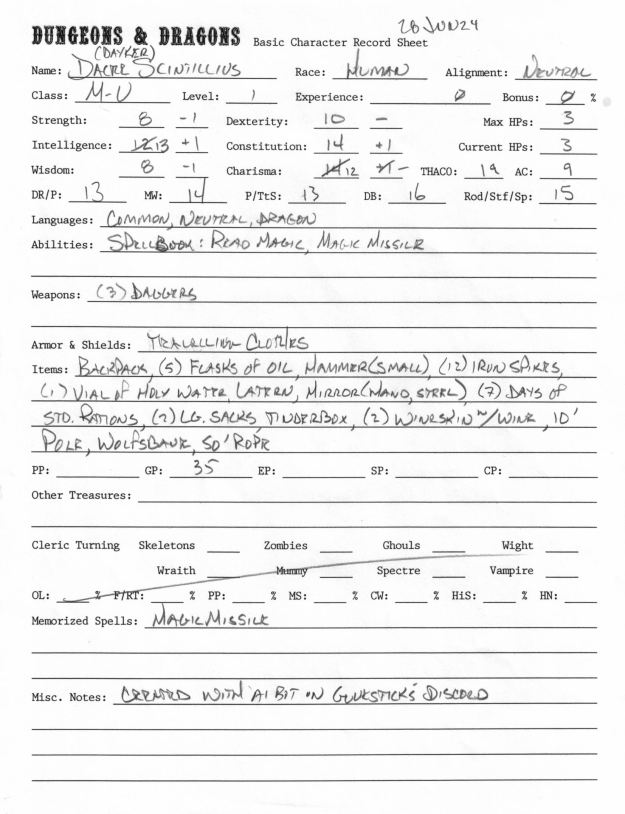 28 JUN 24
DUNGEONS & DRAGONS Basic Character Record Sheet
(DAYKER)
Name: DACRE SCINTILLIUS Race: HUMAN Alignment: NEUTRAL
Class: M-U Level: 1 Experience: 0 Bonus: 0 %
Strength: 8 -1 Dexterity: 10 — Max HPs: 3
Intelligence: 13 +1 Constitution: 14 +1 Current HPs: 3
Wisdom: 8 -1 Charisma: 12 — THACO: 19 AC: 9
DR/P: 13 MW: 14 P/TtS: 13 DB: 16 Rod/Stf/Sp: 15
Languages: COMMON, NEUTRAL, DRAGON
Abilities: SPELLBOOK: READ MAGIC, MAGIC MISSILE
Weapons: (3) DAGGERS
Armor & Shields: TRAVELLING CLOTHES
Items: BACKPACK, (5) FLASKS OF OIL, HAMMER (SMALL) (12) IRON SPIKES,
(1) VIAL OF HOLY WATER, LATERN, MIRROR (HAND, STEEL) (7) DAYS OF
STD. RATIONS, (2) LG. SACKS, TINDERBOX, (2) WINESKIN W/WINE, 10'
POLE, WOLFSBANE, 50' ROPE
PP: GP: 35 EP: SP: CP:
Other Treasures:
Cleric Turning Skeletons Zombies Ghouls Wight
Wraith Mummy Spectre Vampire
OL: % F/RT: % PP: % MS: % CW: % HiS: % HN:
Memorized Spells: MAGIC MISSILE
Misc. Notes: CREATED WITH AI BIT ON DISCORD